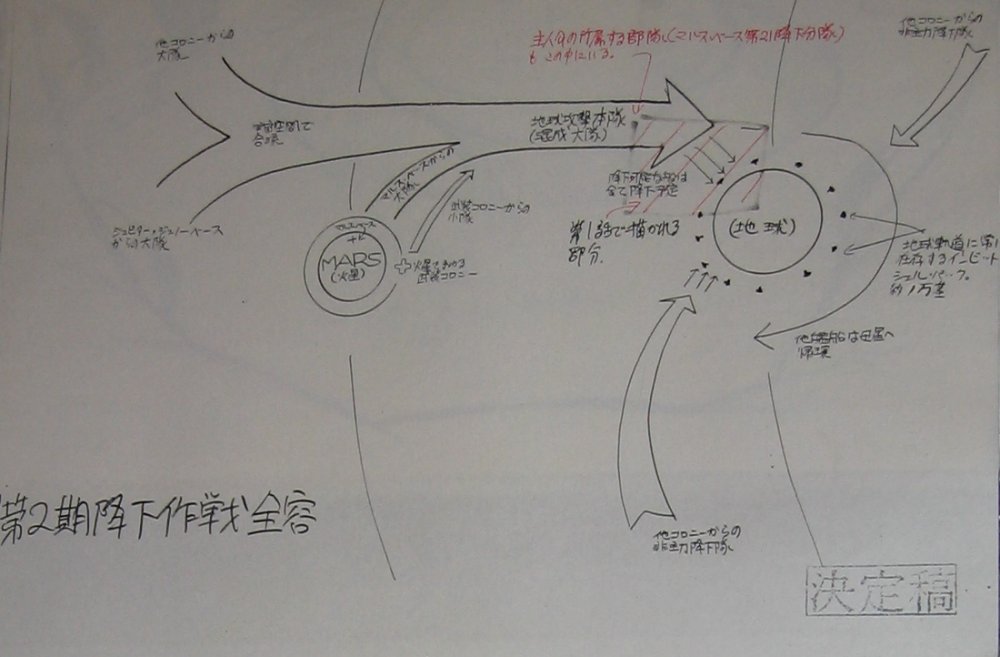 他コロニーからの
大隊
主人公の所属する部隊(マルスベース第21降下分隊)
もこの中にいる。
他コロニーからの
非主力降下隊
亜空間で
合流
地球攻撃本隊
(混成大隊)
マルスベースからの
大隊
降下可能な船は
全て降下予定
武装コロニーからの
小隊
ジュピター・ジュノーベース
からの大隊
マルスベース
MARS
(火星)
火星をまわる
武装コロニー
第1話で描かれる
部分
(地球)
地球軌道に常に
在存するインビット
シェル・バーグ。
約1万基
他艦船は母星へ
帰環
第2期降下作戦全容
他コロニーからの
非主力降下隊
決定稿